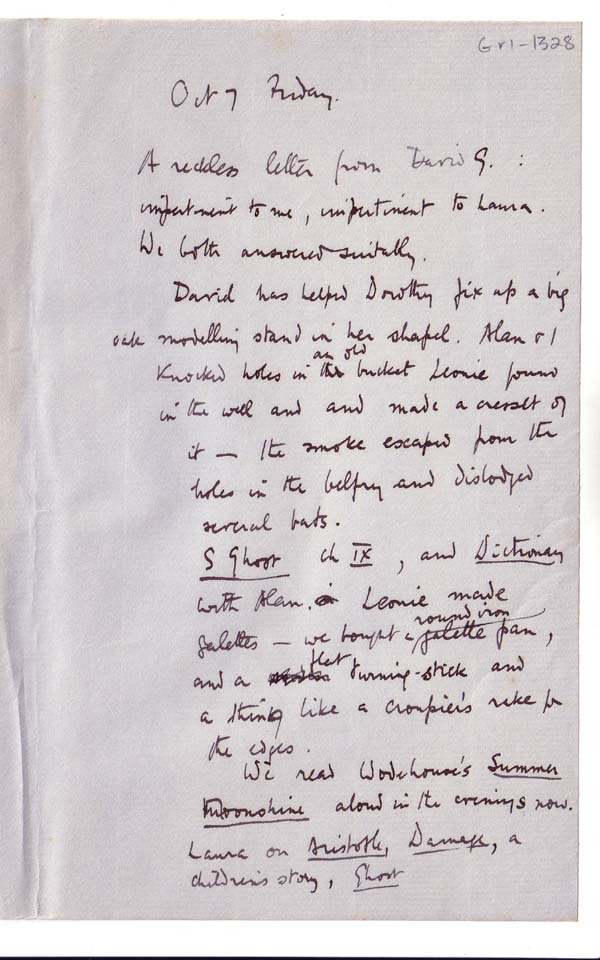 Gr1-1328
Oct 7 Friday.
A reckless letter from David G. :
impertinent to me, impertinent to Laura.
We both answered suitably.
David has helped Dorothy fix up a big
oak modelling stand in her shapel. Alan & I
Knocked holes in an old bucket Leonie found
in the well and and made a cresset of
it — the smoke escaped from the
holes in the belfry and dislodged
several bats.
S Ghost ch IX, and Dictionary
with Alan. Leonie made
galettes — we bought a round iron galette pan,
and a flat turning-stick and
a thing like a croupier's rake for
the edges.
We read Wodehouse's Summer
Moonshine aloud in the evenings now.
Laura on Aristotle, Damage, a
children's story, Ghost